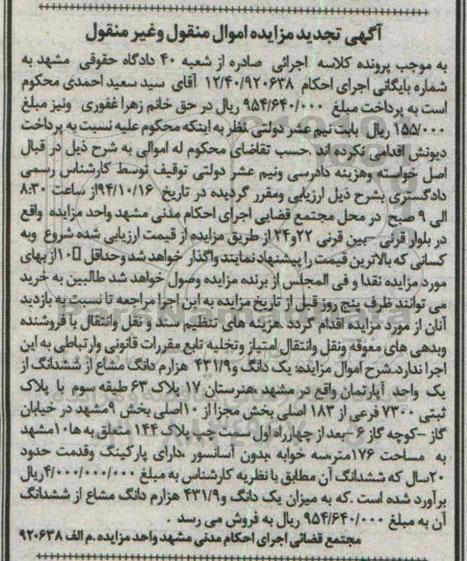 آگهی تجدید مزایده اموال منقول وغیر منقول
به موجب پرونده کلاسه اجرائی صادره از شعبه ۴۰ دادگاه حقوقی مشهد به
شماره بایگانی اجرای احکام ۱۲/۴۰/۹۲۰۶۳۸ آقای سید سعید احمدی محکوم
است به پرداخت مبلغ ۹۵۴/۶۴۰/۰۰۰ ریال در حق خانم زهرا غفوری ونیز مبلغ
۱۵۵/۰۰۰ ریال بابت نیم عشر دولتی نظر به اینکه محکوم علیه نسبت به پرداخت
دیونش اقدامی نکرده اند حسب تقاضای محکوم له اموالی به شرح ذیل در قبال
اصل خواسته وهزینه دادرسی ونیم عشر دولتی توقیف توسط کارشناس رسمی
دادگستری بشرح ذیل ارزیابی ومقرر گردیده در تاریخ ۹۴/۱۰/۱۶از ساعت ۸:۳۰
الی ۹ صبح در محل مجتمع قضایی اجرای احکام مدنی مشهد واحد مزایده واقع
در بلوار قرنی –بین قرنی ۲۲و۲۴ از طریق مزایده از قیمت ارزیابی شده شروع وبه
کسانی که بالاترین قیمت را پیشنهاد نمایند واگذار خواهد شد وحداقل ۱۰از بهای
مورد مزایده نقدا و فی المجلس از برنده مزایده وصول خواهد شد طالبین به خرید
می توانند ظرف پنج روز قبل از تاریخ مزایده به این اجرا مراجعه تا نسبت به بازدید
آنان از مورد مزایده اقدام گردد .هزینه های تنظیم سند و نقل وانتقال با فروشنده
وبدهی های معوقه ونقل وانتقال امتیاز وتخلیه تابع مقررات قانونی وارتباطی به این
اجرا ندارد.شرح اموال مزایده: یک دانگ و۴۳۱/۹ هزارم دانگ مشاع از ششدانگ از
یک واحد آپارتمان واقع در مشهد ،هنرستان ۱۷ پلاک ۶۳ طبقه سوم با پلاک
ثبتی ۷۳۰۰ فرعی از ۱۸۳ اصلی بخش مجزا از ۱۰اصلی بخش ۹مشهد در خیابان
گاز –کوچه گاز ۷ –بعد از چهارراه اول سمت چپ پلاک ۱۴۴ متعلق به ها۱۰مشهد
به مساحت ۱۷۶متر،سه خوابه ،بدون آسانسور ،دارای پارکینگ وقدمت حدود
۲۰سال که ششدانگ آن مطابق با نظریه کارشناس به مبلغ ۴/۰۰۰/۰۰۰/۰۰۰ریال
برآورد شده است .که به میزان یک دانگ و۴۳۱/۹ هزارم دانگ مشاع از ششدانگ
آن به مبلغ ۹۵۴/۶۴۰/۰۰۰ ریال به فروش می رسد .
مجتمع قضائی اجرای احکام مدنی مشهد واحد مزایده .م الف ۹۲۰۶۳۸